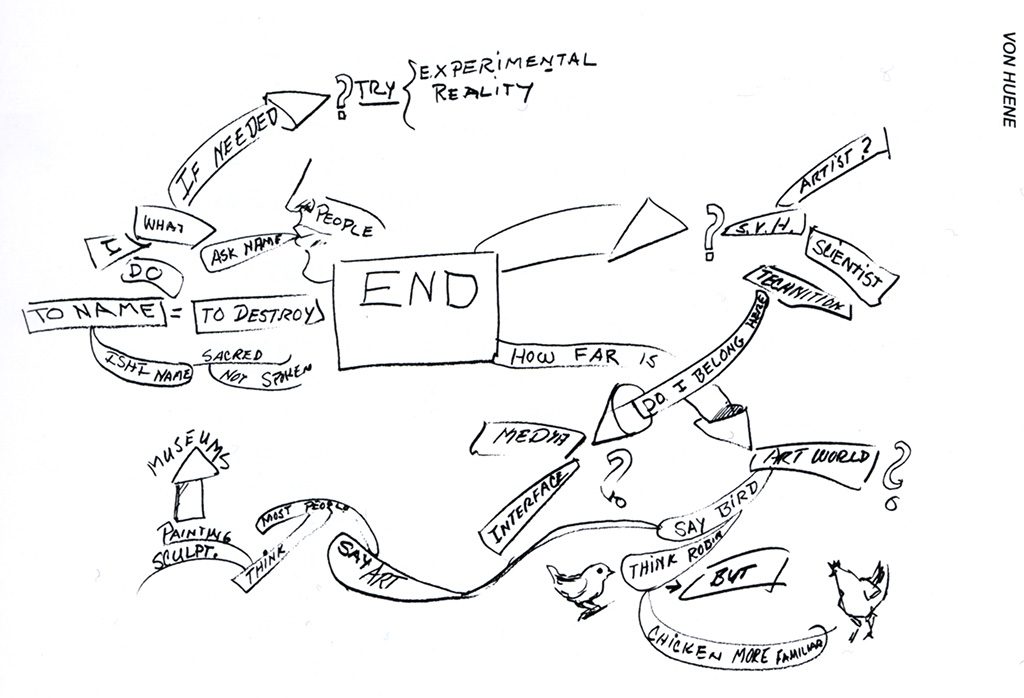 VON HUENE
? TRY { EXPERIMENTAL
REALITY
IF NEEDED
WHAT
I
DO
ASK NAME
PEOPLE
TO NAME = TO DESTROY
ISHI NAME
SACRED
NOT SPOKEN
END
?
S.V.H.
ARTIST?
SCIENTIST
TECHNITION
DO I BELONG HERE
HOW FAR IS
MEDIA
INTERFACE
?
ART WORLD ?
SAY BIRD
THINK ROBIN
BUT
CHICKEN MORE FAMILIAR
SAY ART
MOST PEOPLE
THINK
PAINTING
SCULPT.
MUSEUMS